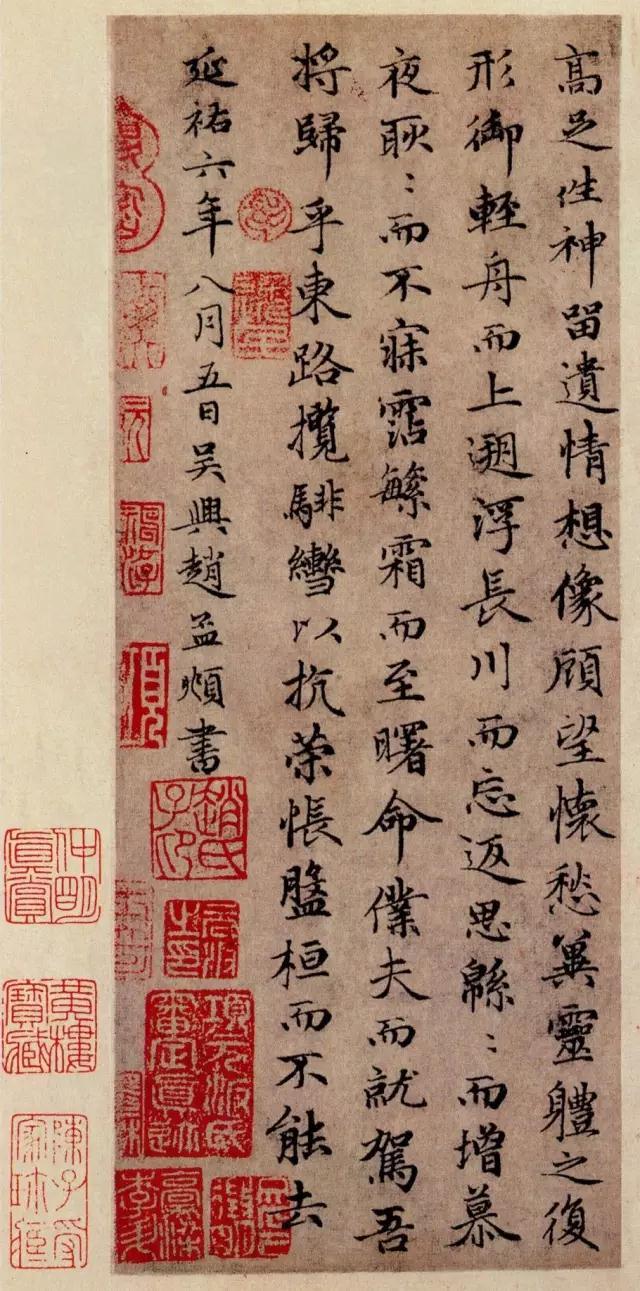 高足往神留遺情想像顧望懷愁冀靈體之復
形御輕舟而上遡浮長川而忘返思緜〻而增慕
夜耿〻而不寐霑繁霜而至曙命僕夫而就駕吾
將歸乎東路攬騑轡以抗策悵盤桓而不能去
延祐六年八月五日吳興趙孟頫書
項元汴氏審定真跡